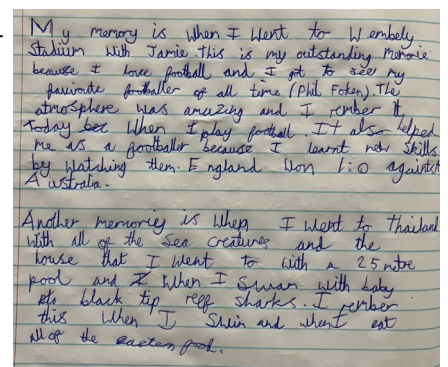 My memory is when I went to Wembely
Stadium with Jamie this is my outstanding memorie
because I love football and I got to see my
favuroute footballer of all time (Phil Foten). The
atmosphere was amazing and I rember it
today bec when I play football. It also helped
me as a footballer because I learnt new skills
by watching them. England won 1:0 against
Australia.
Another memories is when I went to Thailand
with all of the Sea creatures and the
house that I went to with a 25 metre
pool and when I swam with baby
black tip reef sharks. I rember
this when I swim and when I eat
all of the food.